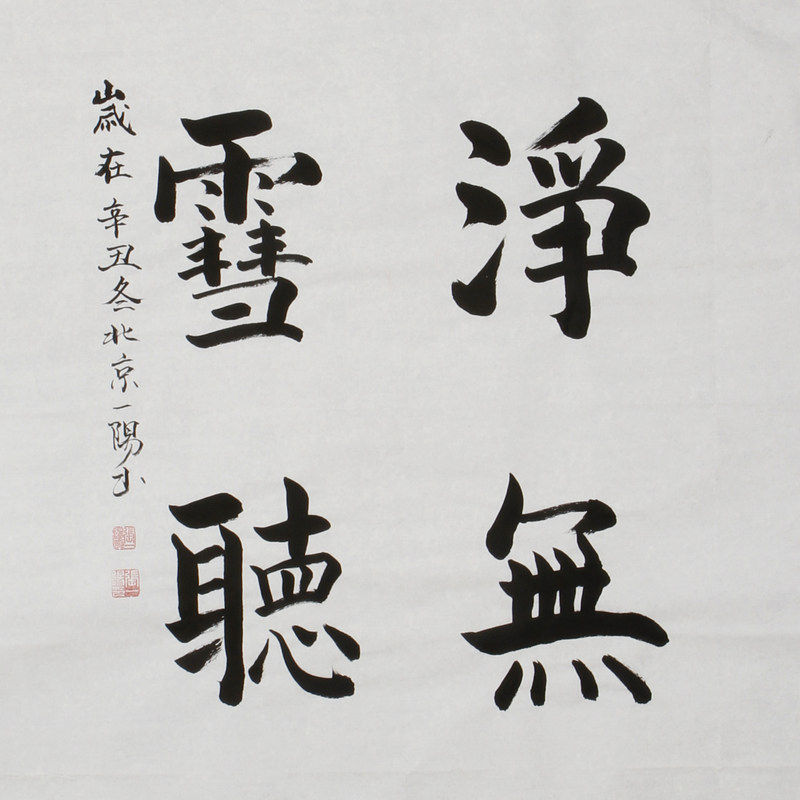 淨無
䨮聽
歲在辛丑冬北京一陽书